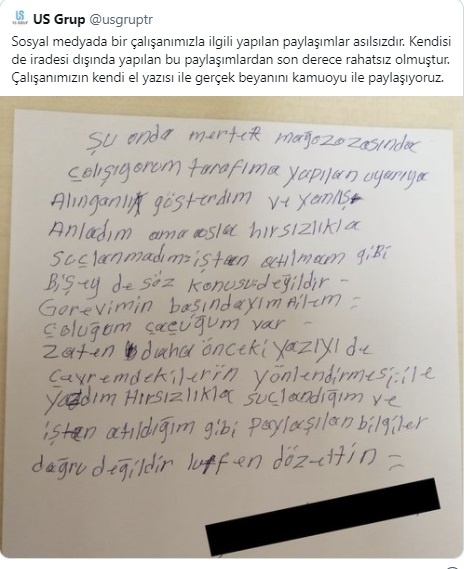 US GRUP
US Grup @usgruptr
Sosyal medyada bir çalışanımızla ilgili yapılan paylaşımlar asılsızdır. Kendisi
de iradesi dışında yapılan bu paylaşımlardan son derece rahatsız olmuştur.
Çalışanımızın kendi el yazısı ile gerçek beyanını kamuoyu ile paylaşıyoruz.
Şu anda mertek mağozozasında
çalışıyorum tarafıma yapılan uyarıya
Alınganlık gösterdim ve yanlış
Anladım ama asla hırsızlıkla
suçlanmadım işten atılmam gibi
Bişey de söz konusu değildir -
Görevimin başındayım Ailem =
çoluğum çacuğum var -
Zaten daha önceki yazıyı de
çevremdekilerin yönlendirmesi ile
yazdım Hırsızlıkla suçlandığım ve
işten atıldığım gibi Paylaşılan bilgiler
doğru değildir lutfen düzettin =